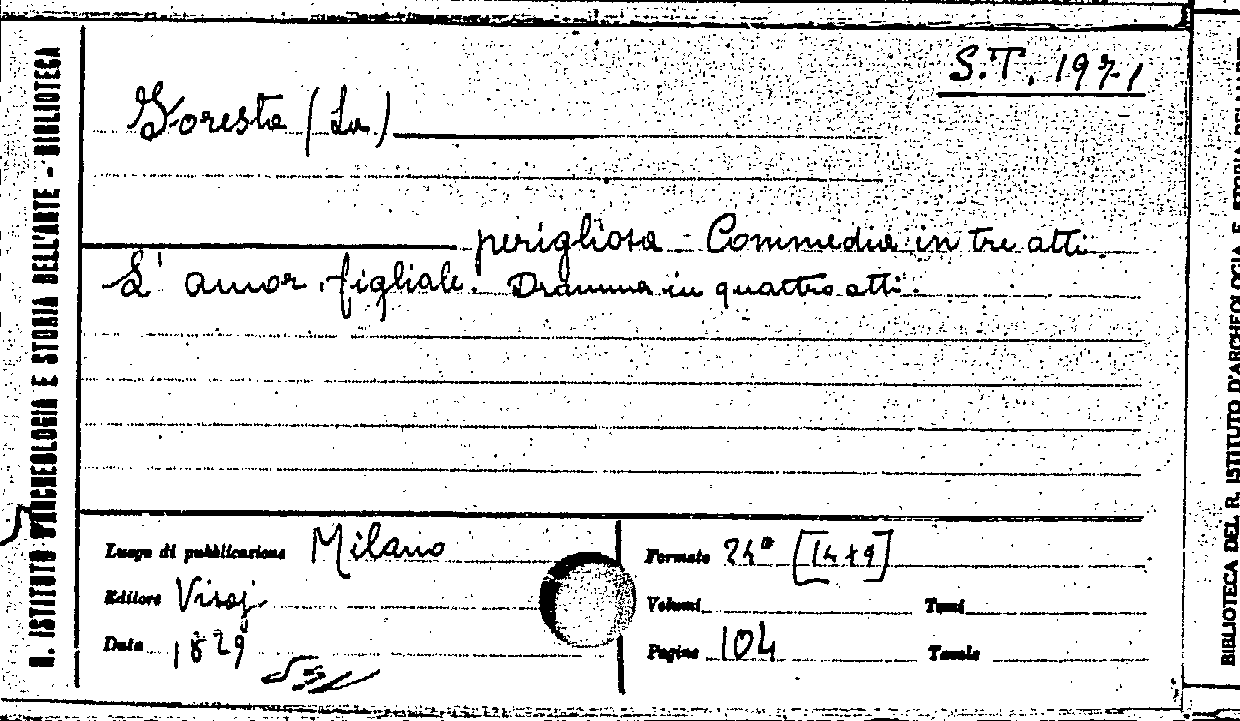 S.T. 1971
Foresta (La)
perigliosa - Commedia in tre atti.
L'amor figliale. Dramma in quattro atti.
Luogo di pubblicazione Milano
Formato 24° [14×9]
Editore Visaj
Volumi Tomi
Data 1829
Pagine 104 Tavole
R. ISTITUTO D'ARCHEOLOGIA E STORIA DELL'ARTE - BIBLIOTECA
BIBLIOTECA DEL R. ISTITUTO D'ARCHEOLOGIA E STORIA